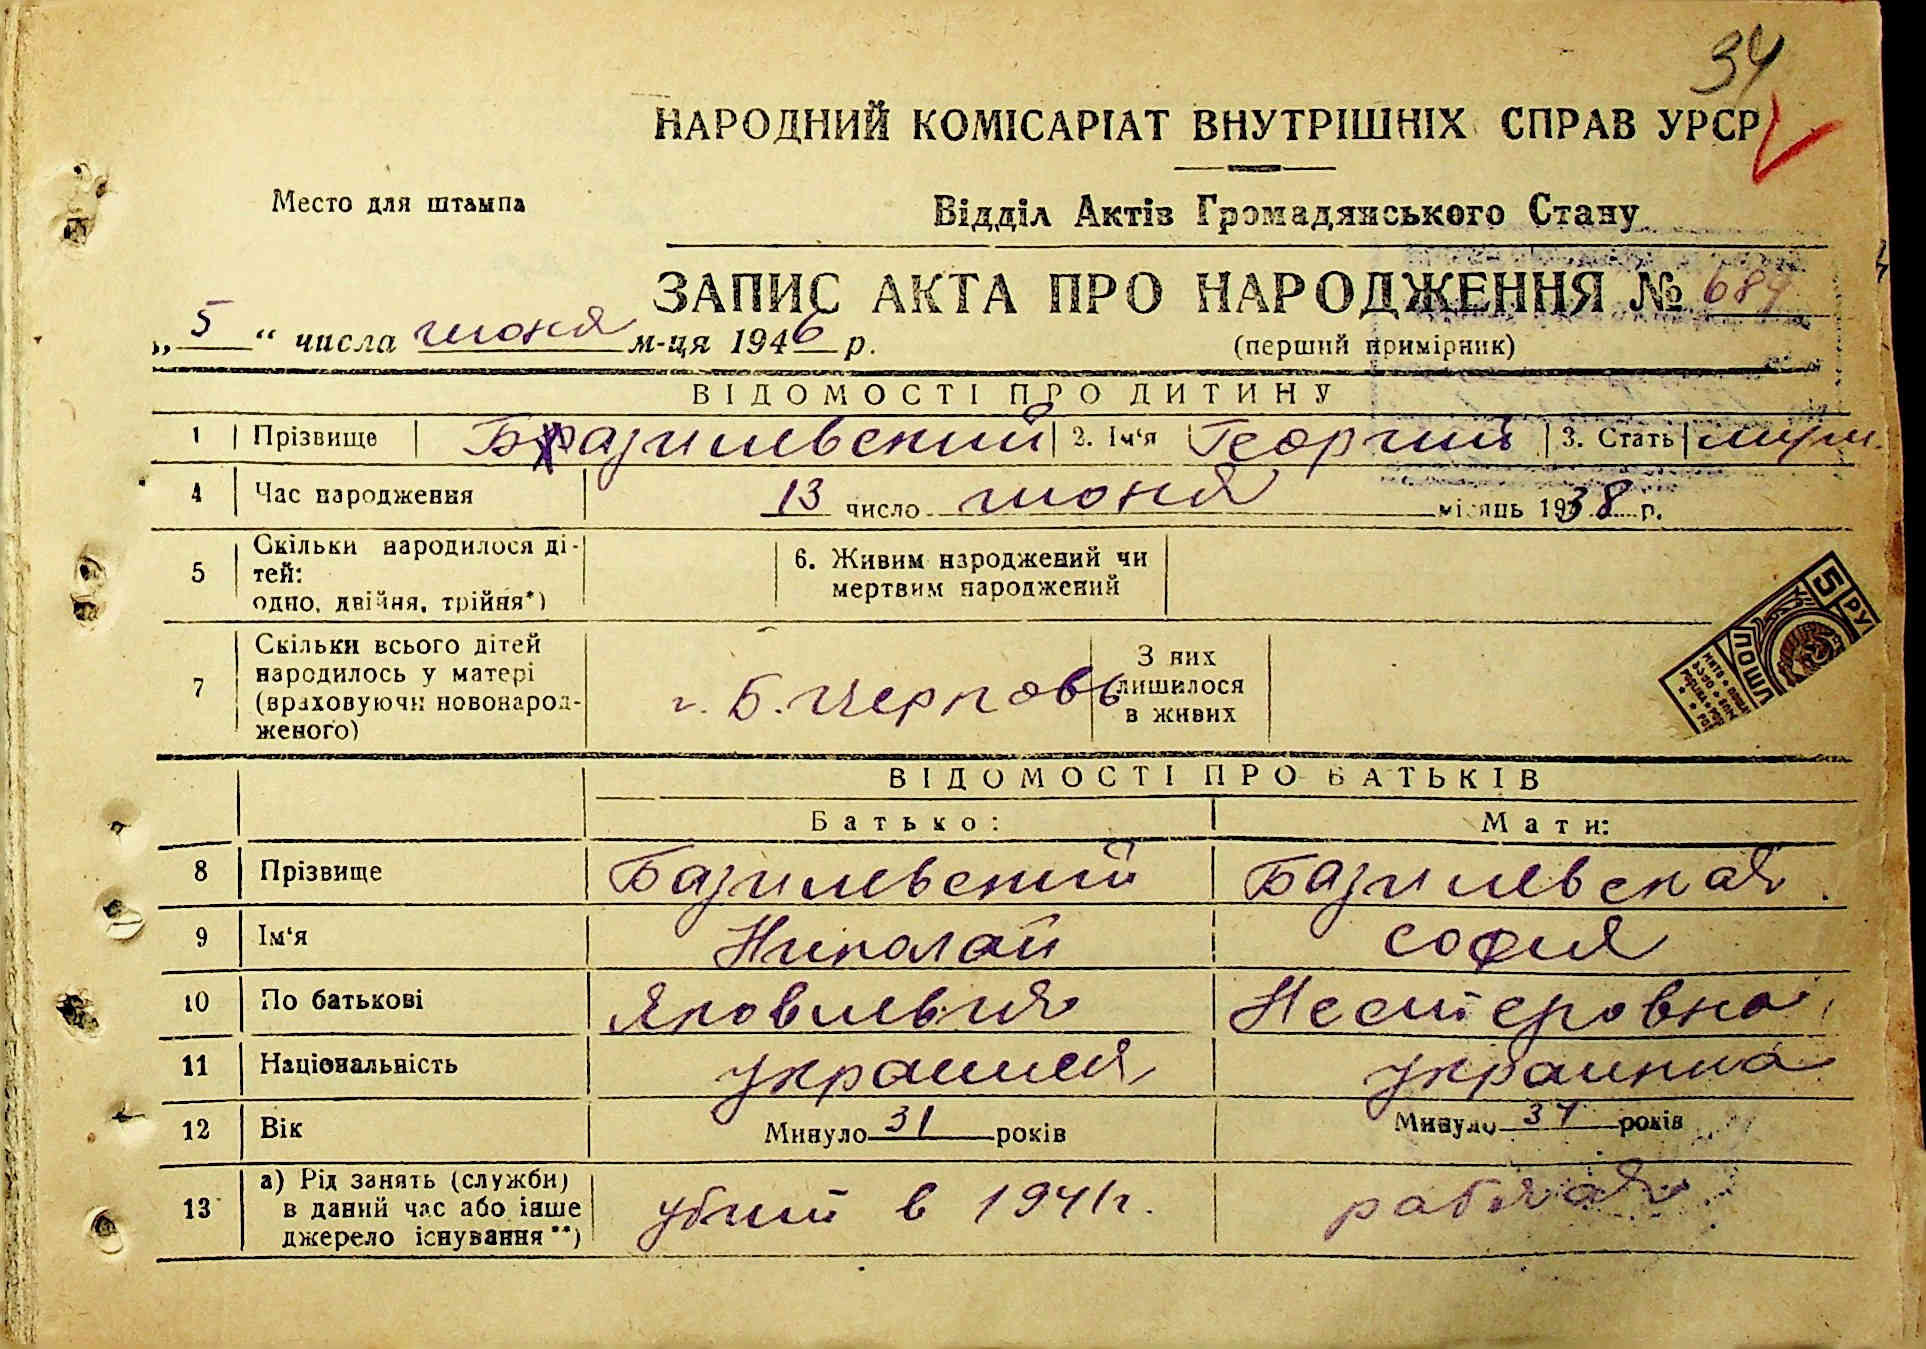 34
НАРОДНИЙ КОМІСАРІАТ ВНУТРІШНІХ СПРАВ УРСР
Место для штампа
Відділ Актів Громадянського Стану
ЗАПИС АКТА ПРО НАРОДЖЕННЯ № 684
„ 5 “ числа июня м-ця 1946 р.
(перший примірник)
ВІДОМОСТІ ПРО ДИТИНУ
1 Прізвище Базилевский 2. Ім‘я Георгий 3. Стать муж.
4 Час народження 13 число июня місяць 1938 р.
5 Скільки народилося ді-
тей:
одно, двійня, трійня*)
6. Живим народжений чи
мертвим народжений
7 Скільки всього дітей
народилось у матері
(враховуючи новонарод-
женого)
г. Б. Церковь
З них
лишилося
в живих
5 РУ
ПОШЛ
ВІДОМОСТІ ПРО БАТЬКІВ
Батько: Мати:
8 Прізвище Базилевский Базилевская
9 Ім‘я Николай София
10 По батькові Яковлевич Нестеровна
11 Національність украинец украинка
12 Вік Минуло 31 років Минуло 37 років
13 а) Рід занять (служби)
в даний час або інше
джерело існування**)
убит в 1941 г. рабочая